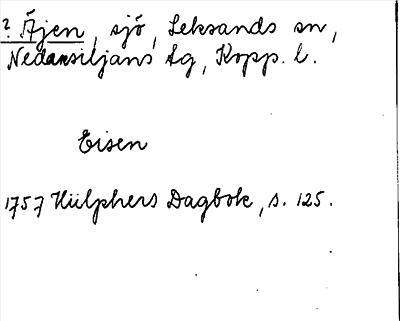 ? Äjen, sjö, Leksands sn,
Nedansiljans tg, Kopp. l.
Eisen
1757 Hülphers Dagbok, s. 125.